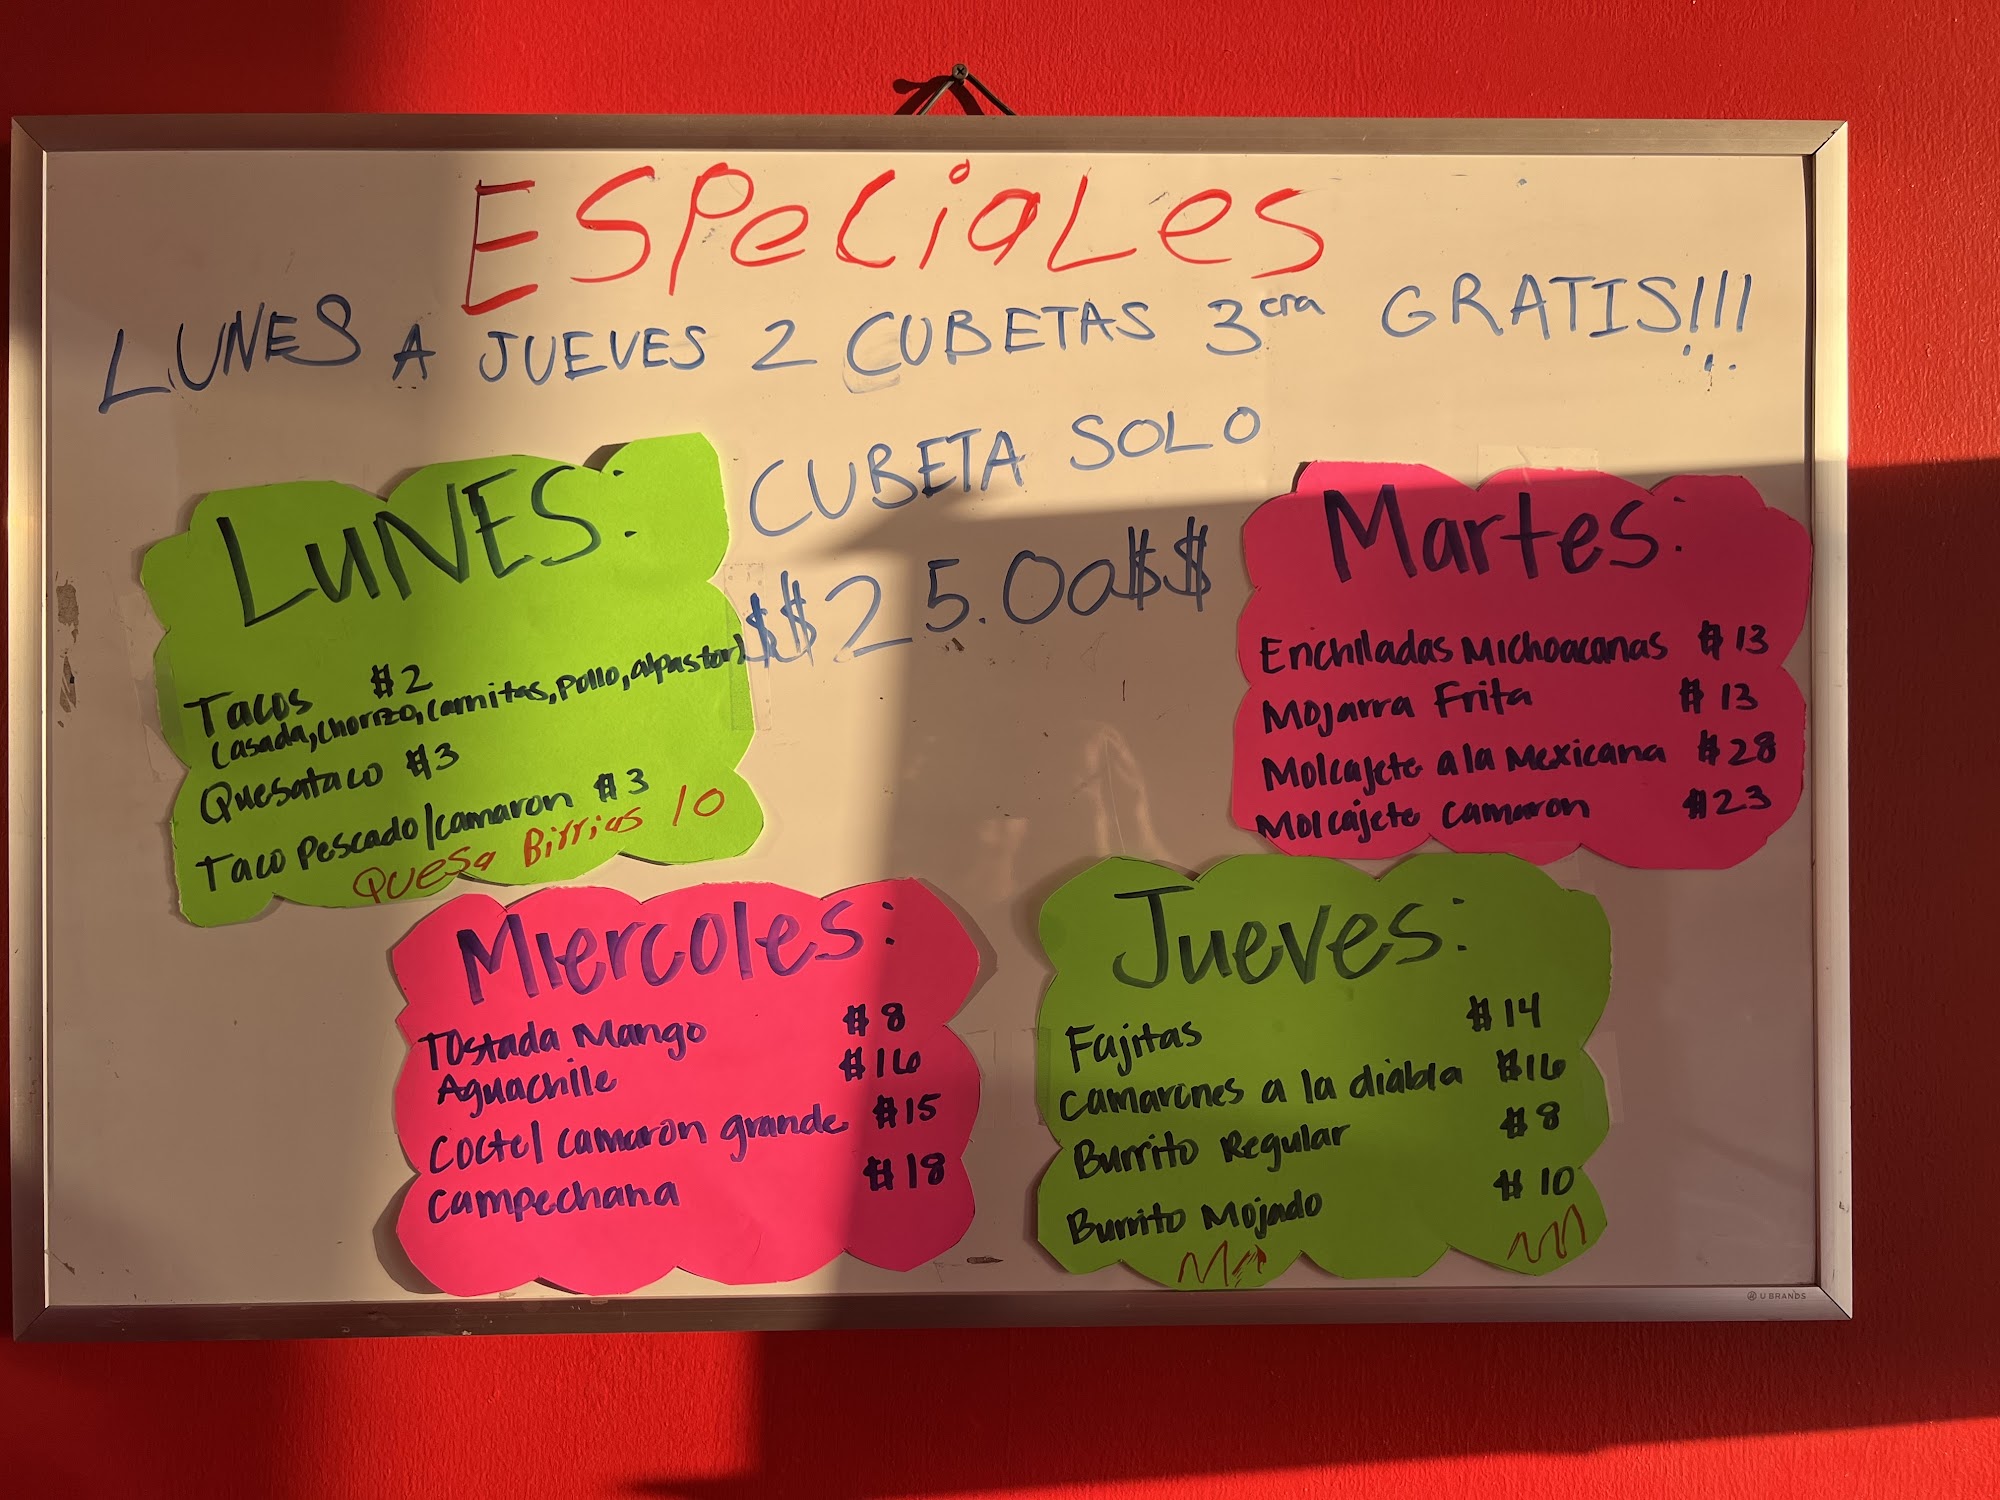 ESPeCiaLes
LUNES A JUEVES 2 CUBETAS 3era GRATIS!!!
CUBETA SOLO
$$25.00$$
LUNES:
Tacos $2
(asada, chorizo, carnitas, pollo, alpastor)
Quesataco $3
Taco Pescado/camaron $3
Quesa Birrias 10
Martes:
Enchiladas Michoacanas $13
Mojarra Frita $13
Molcajete a la Mexicana $28
Molcajete camaron $23
Miercoles:
Tostada Mango $8
Aguachile $16
Coctel camaron grande $15
Campechana $18
Jueves:
Fajitas $14
Camarones a la diabla $16
Burrito Regular $8
Burrito Mojado $10
U BRANDS